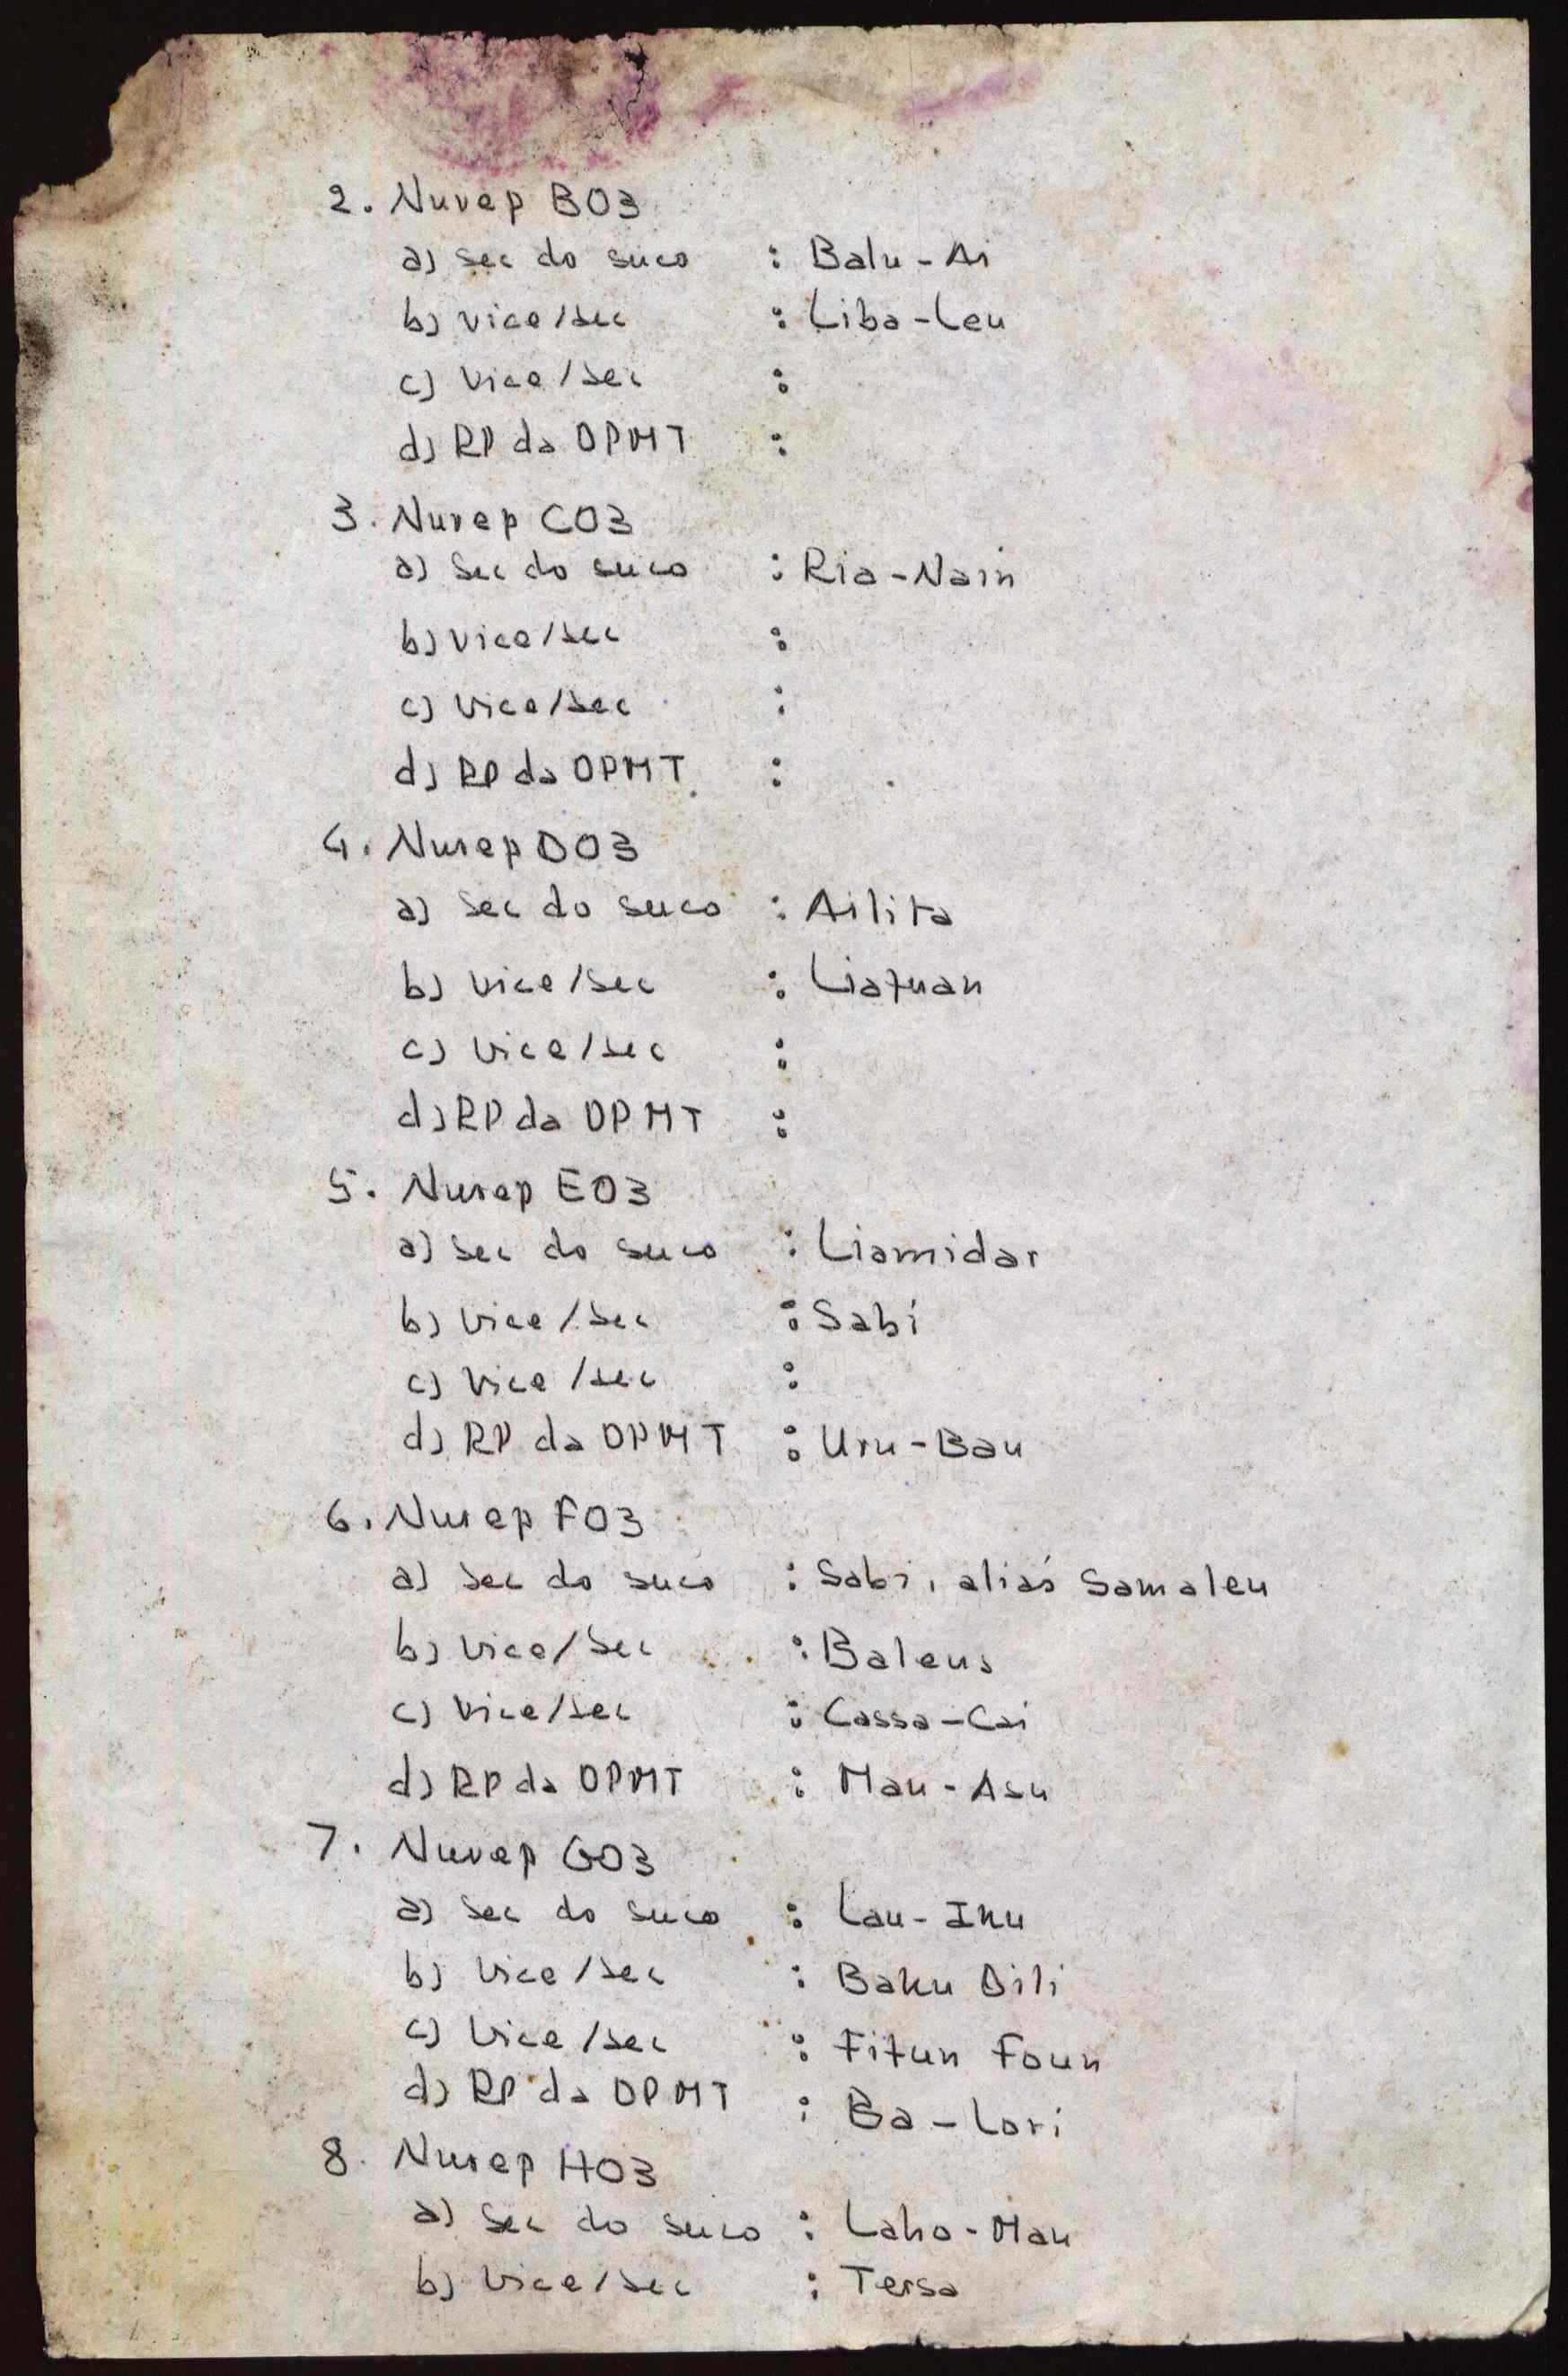 2. Nurep B03
a) sec do suco : Balu-Ai
b) vice/sec : Liba-Leu
c) vice/sec :
d) RP da OPMT :
3. Nurep C03
a) sec do suco : Ria-Nain
b) vice/sec :
c) vice/sec :
d) RP da OPMT :
4. Nurep D03
a) sec do suco : Ailita
b) vice/sec : Liafuan
c) vice/sec :
d) RP da OPMT :
5. Nurep E03
a) sec do suco : Liamidar
b) vice/sec : Sabi
c) vice/sec :
d) RP da OPMT : Uru-Bau
6. Nurep F03
a) sec do suco : Sabi, alias Samaleu
b) vice/sec : Baleus
c) vice/sec : Cassa-Cai
d) RP da OPMT : Mau-Asu
7. Nurep G03
a) sec do suco : Lau-Iku
b) vice/sec : Baku Dili
c) vice/sec : Fitun Foun
d) RP da OPMT : Ba-Lori
8. Nurep H03
a) sec do suco : Laho-Mau
b) vice/sec : Tersa